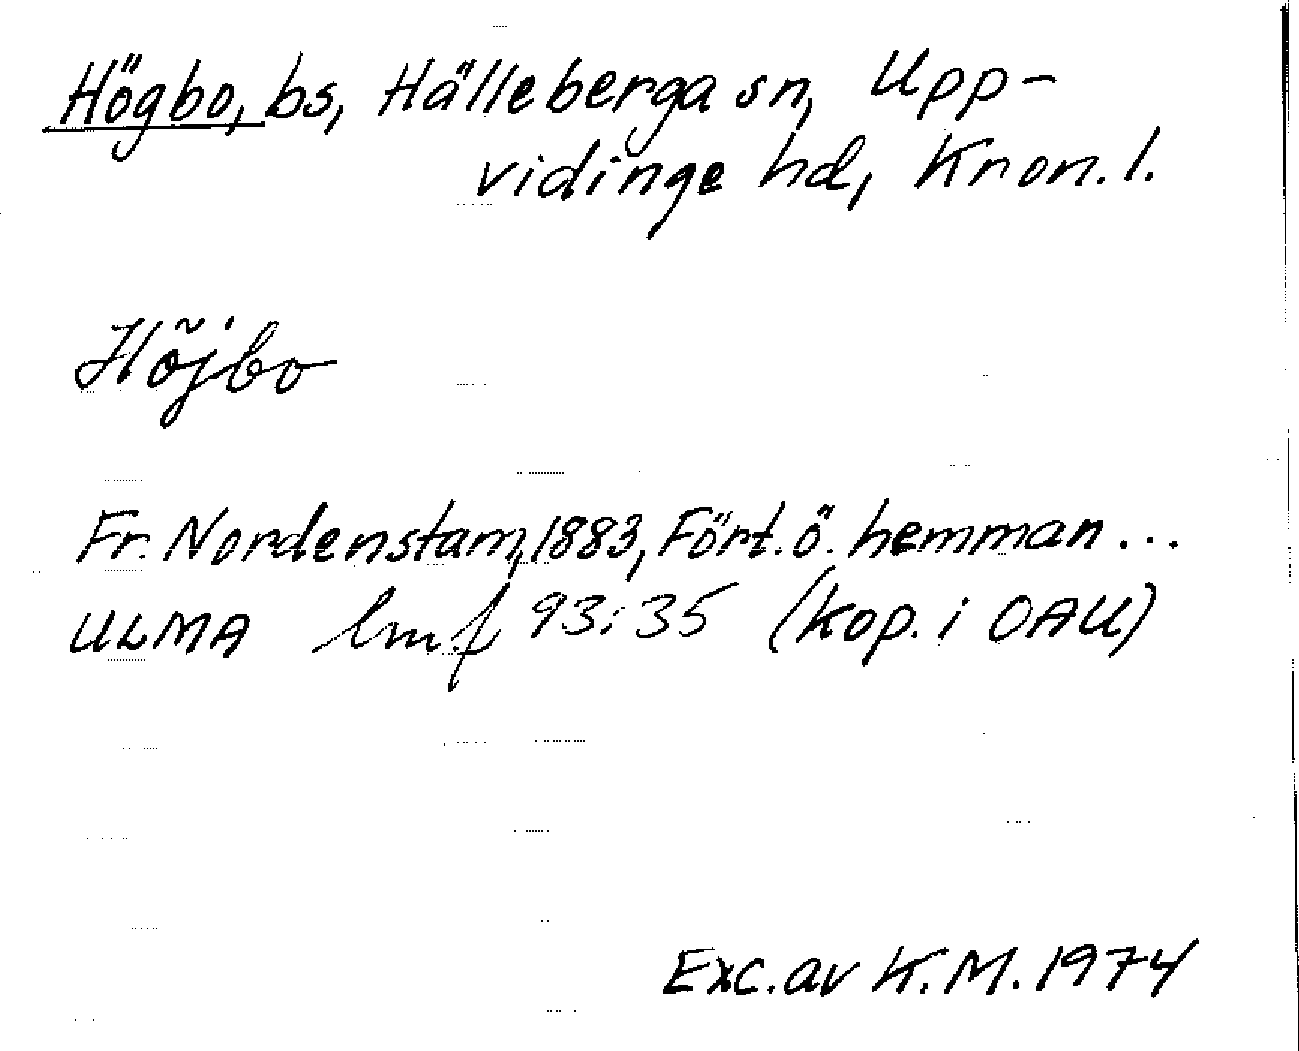 Högbo, bs, Hälleberga sn, Upp-
vidinge hd, Kron. l.
Höjbo
Fr. Nordenstam, 1883, Fört. ö. hemman ...
ULMA lmf 93:35 (kop. i OAU)
Exc. av K. M. 1974